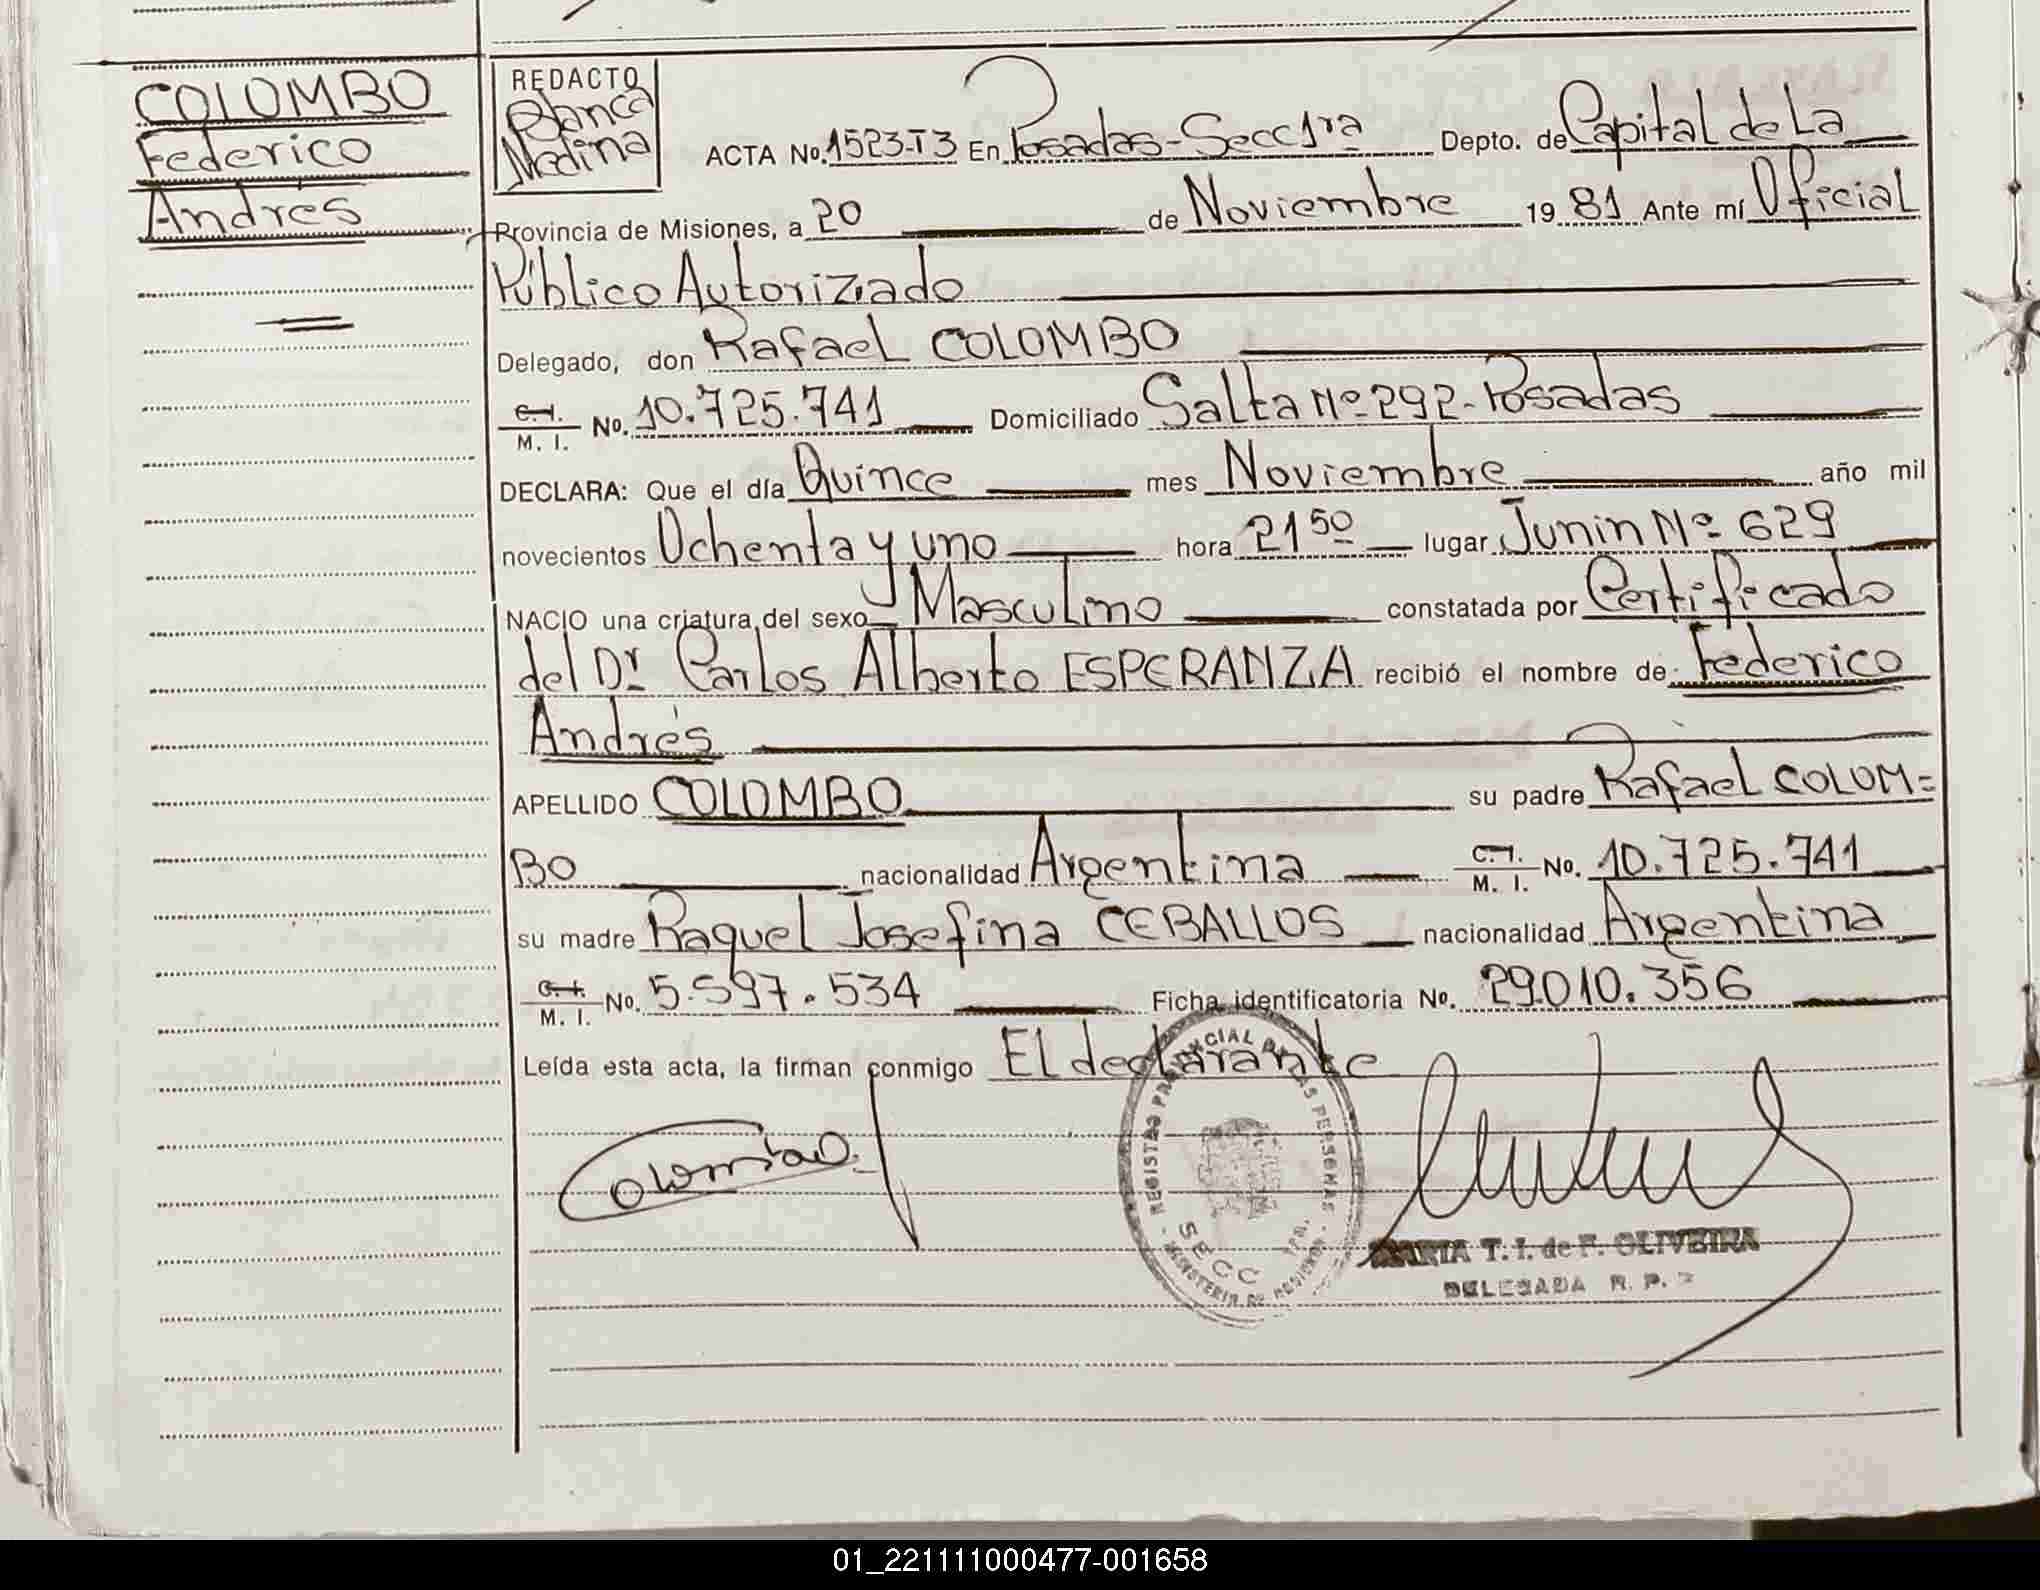 COLOMBO
Federico
Andrés
REDACTO
Blanca
Medina
ACTA No. 1523-T3 En Posadas-Secc 1ra Depto. de Capital de La
Provincia de Misiones, a 20 de Noviembre 19 81 Ante mí Oficial
Público Autorizado
Delegado, don Rafael COLOMBO
C. I.
M. I. No. 10.725.741 Domiciliado Salta Nº 292-Posadas
DECLARA: Que el día Quince mes Noviembre año mil
novecientos Ochenta y uno hora 21 50 lugar Junin Nº 629
NACIO una criatura del sexo Masculino constatada por Certificado
del Dr. Carlos Alberto ESPERANZA recibió el nombre de Federico
Andrés
APELLIDO COLOMBO su padre Rafael COLOM=
BO nacionalidad Argentina C. I. No. 10.725.741
M. I.
su madre Raquel Josefina CEBALLOS nacionalidad Argentina
C. I.
M. I. No. 5.597.534 Ficha identificatoria No. 29.010.356
Leída esta acta, la firman conmigo El declarante
Colombo
REGISTRO PROVINCIAL DE LAS PERSONAS
SECC
MARIA T. I. de F. OLIVEIRA
DELEGADA R. P.
01_221111000477-001658